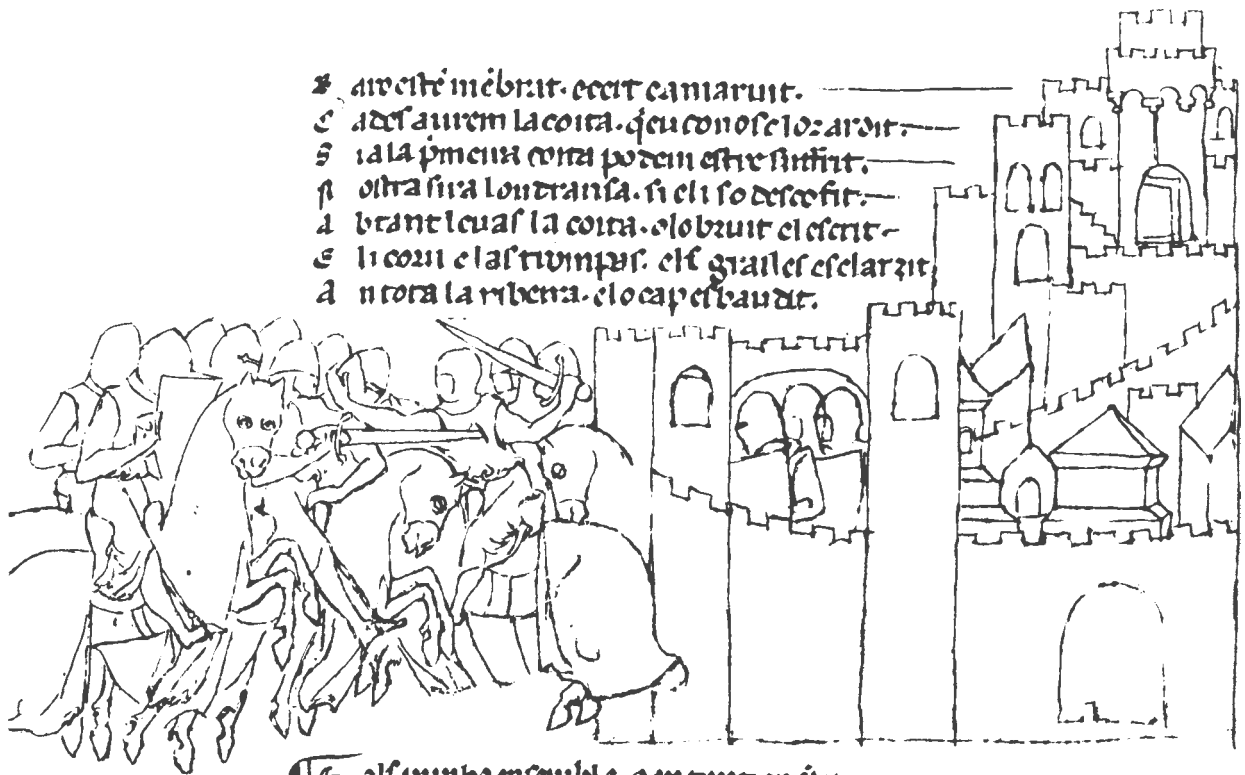 B aro estē mēbrat · ecert eamaruit ·
E ades aurem la coita · q̄eu conosc lozardit ·
S ia la pͥmeira coita podem estre suffrit ·
N ostra sira londransa · si eli so descofit ·
A btant leuas la coita · elo bruit el escrit
E li corn e las trompas · els grailes esclarzit
A n tota la ribeira · elo cap esbaudit ·